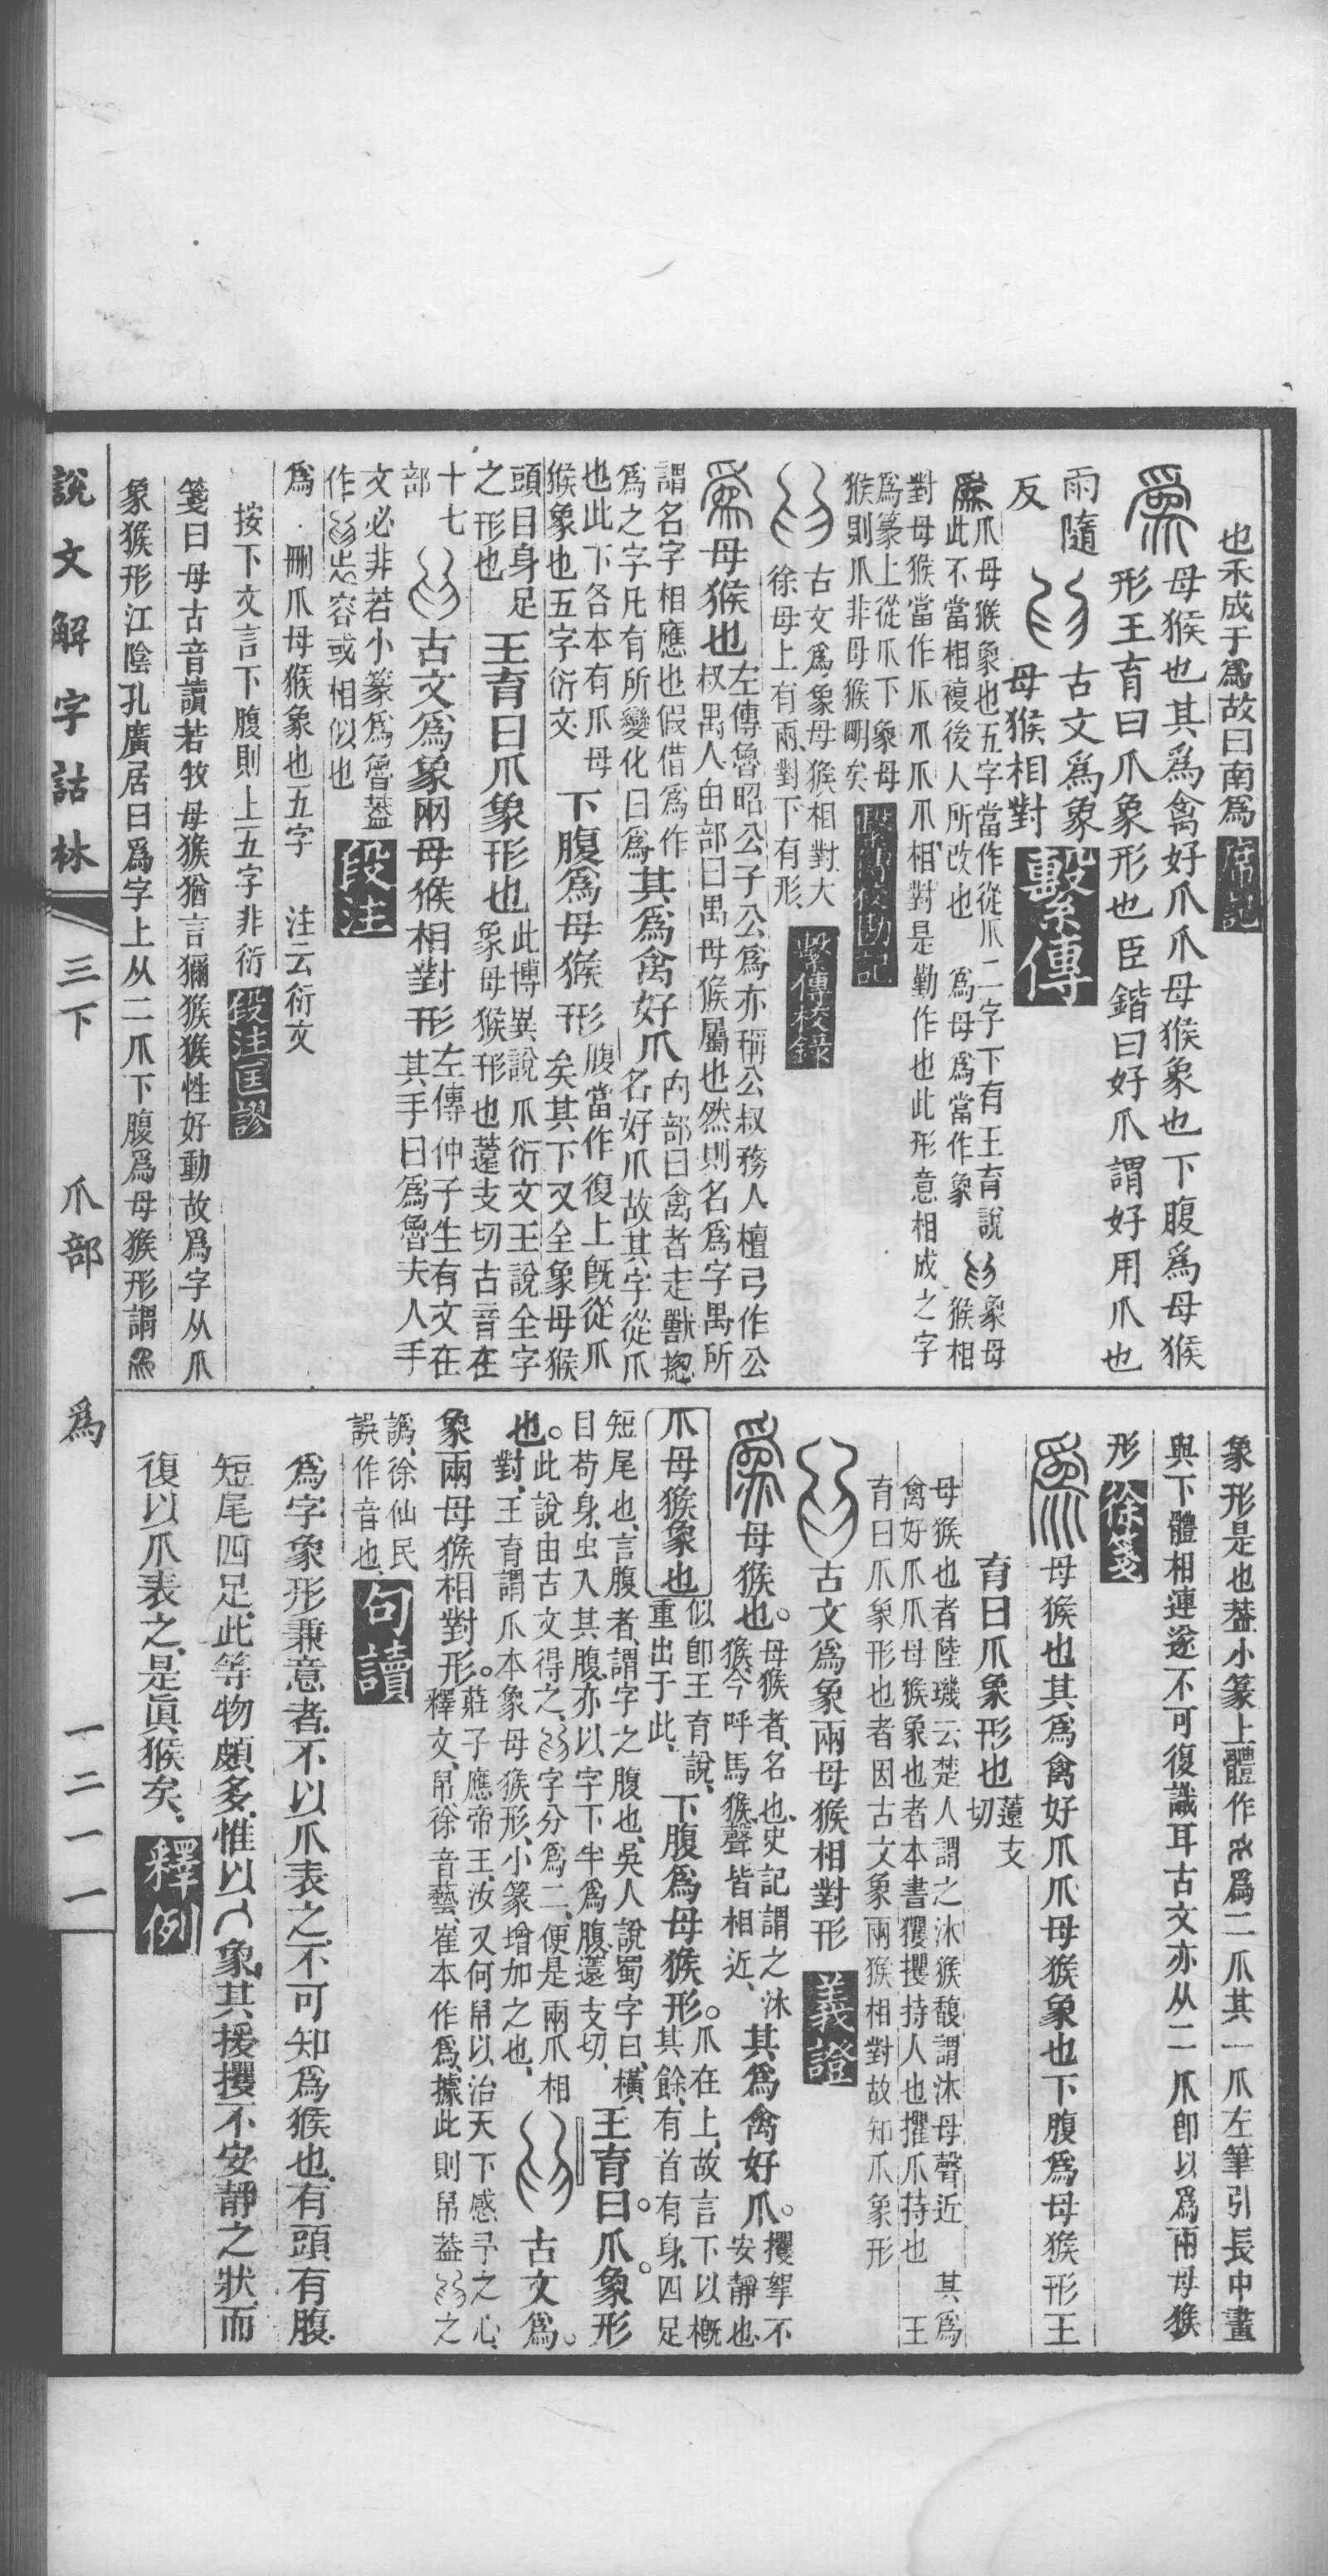 也禾成于爲故曰南爲 席記
母猴也其爲禽好爪爪母猴象也下腹爲母猴
形王育曰爪象形也臣鍇曰好爪謂好用爪也
雨隨
反
古文爲象
母猴相對 繫傳
爪母猴象也五字當作從爪二字下有王育說 象母
此不當相複後人所改也 爲母爲當作象 猴相
對母猴當作爪爪爪爪相對是動作也此形意相成之字
爲篆上從爪下象母
猴則爪非母猴明矣 繫傳校勘記
古文爲象母猴相對大
徐母上有兩對下有形 繫傳校錄
母猴也 左傳魯昭公子公爲亦稱公叔務人檀弓作公
叔禺人由部曰禺母猴屬也然則名爲字禺所
謂名字相應也假借爲作
爲之字凡有所變化曰爲 其爲禽好爪 内部曰禽者走獸揔
名好爪故其字從爪
也此下各本有爪母
猴象也五字衍文 下腹爲母猴形 腹當作復上旣從爪
矣其下又全象母猴
頭目身足
之形也 王育曰爪象形也 此博異說爪衍文王說全字
象母猴形也薳支切古音在
十七
部 古文爲象兩母猴相對形 左傳仲子生有文在
其手曰爲魯夫人手
文必非若小篆爲魯葢
作 容或相似也 段注
爲 刪爪母猴象也五字 注云衍文
按下文言下腹則上五字非衍 段注匡謬
箋曰母古音讀若牧母猴猶言獼猴猴性好動故爲字从爪
象猴形江陰孔廣居曰爲字上从二爪下腹爲母猴形謂
象形是也葢小篆上體作 爲二爪其一爪左筆引長中畫
與下體相連遂不可復識耳古文亦从二爪卽以爲兩母猴
形 徐箋
母猴也其爲禽好爪爪母猴象也下腹爲母猴形王
育曰爪象形也 薳支
切
母猴也者陸璣云楚人謂之沐猴馥謂沐母聲近 其爲
禽好爪爪母猴象也者本書玃攫持人也攫爪持也 王
育曰爪象形也者因古文象兩猴相對故知爪象形
古文爲象兩母猴相對形 義證
母猴也。 母猴者、名也、史記謂之沐
猴、今呼馬猴、聲皆相近、 其爲禽好爪。 攫挐不
安靜也
爪母猴象也 似卽王育說、
重出于此、 下腹爲母猴形。 爪在上、故言下以槪
其餘、有首有身、四足
短尾也、言腹者、謂字之腹也、吳人說蜀字曰、橫
目苟身、虫入其腹、亦以字下半爲腹、薳支切、 王育曰。爪。象形
也。 此說由古文得之、 字分爲二、便是兩爪相
對、王育謂爪本象母猴形、小篆增加之也、 古文爲。
象兩母猴相對形。 莊子應帝王、汝又何帠以治天下感予之心、
釋文、帠、徐音藝、崔本作爲、據此則帠葢 之
譌、徐仙民
誤作音也、 句讀
爲字象形兼意者、不以爪表之、不可知爲猴也、有頭有腹、
短尾四足、此等物頗多、惟以 象其援攫不安靜之狀、而
復以爪表之、是眞猴矣、 釋例
說文解字詁林 三下 爪部 爲 一二一一